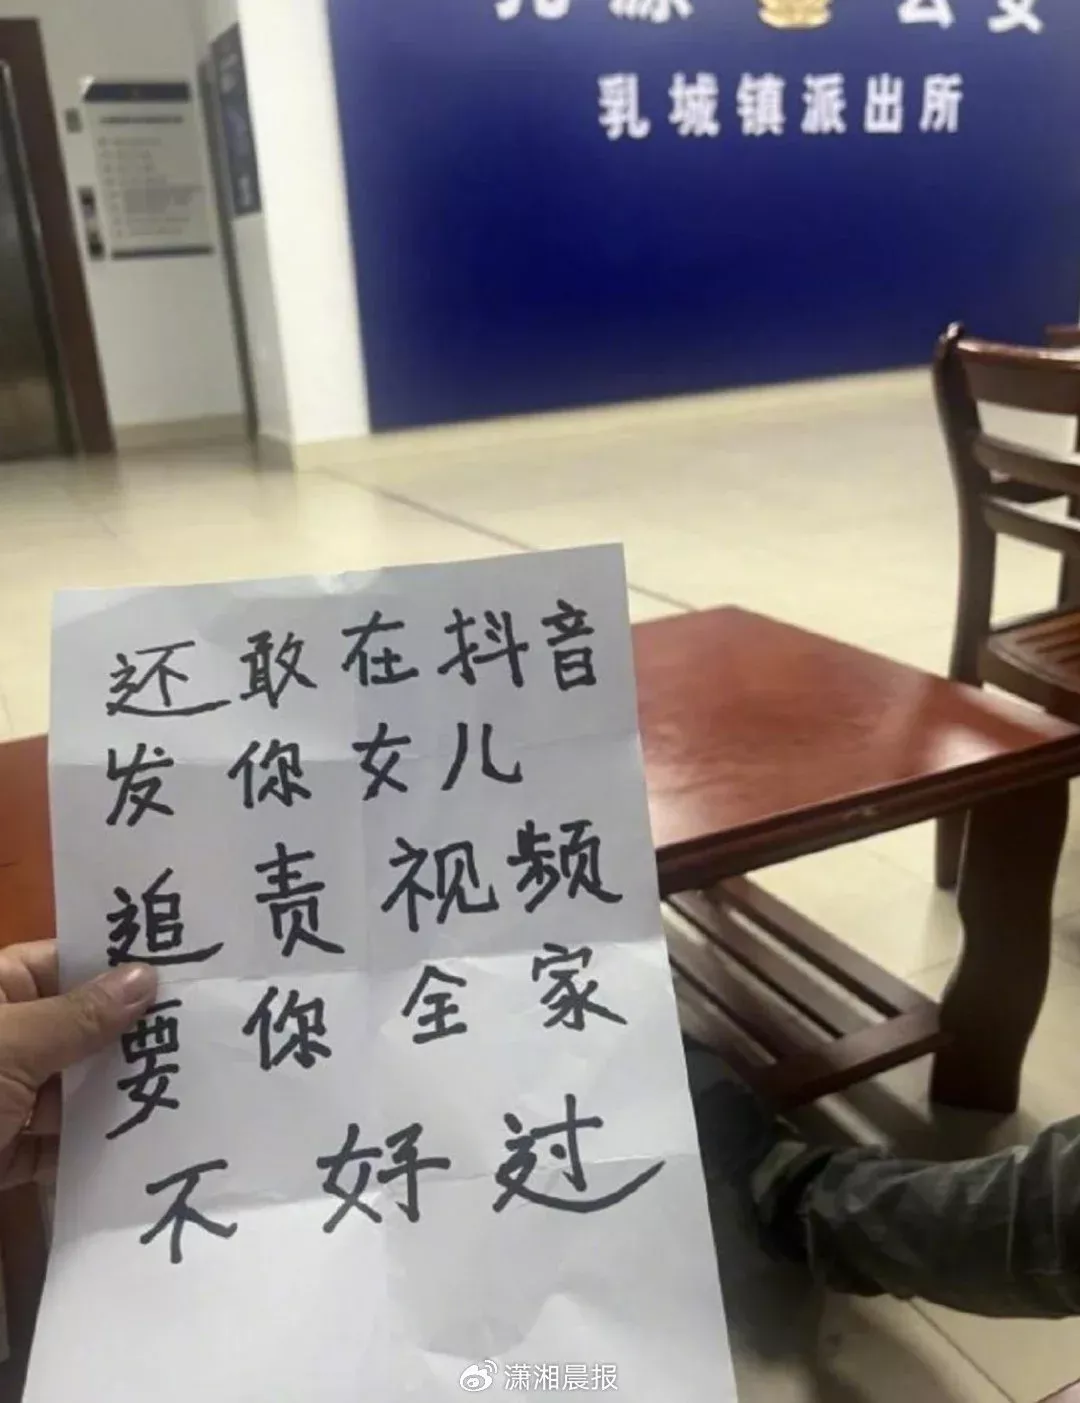 公安
乳城镇派出所
还敢在抖音
发你女儿
追责视频
要你全家
不好过
潇湘晨报